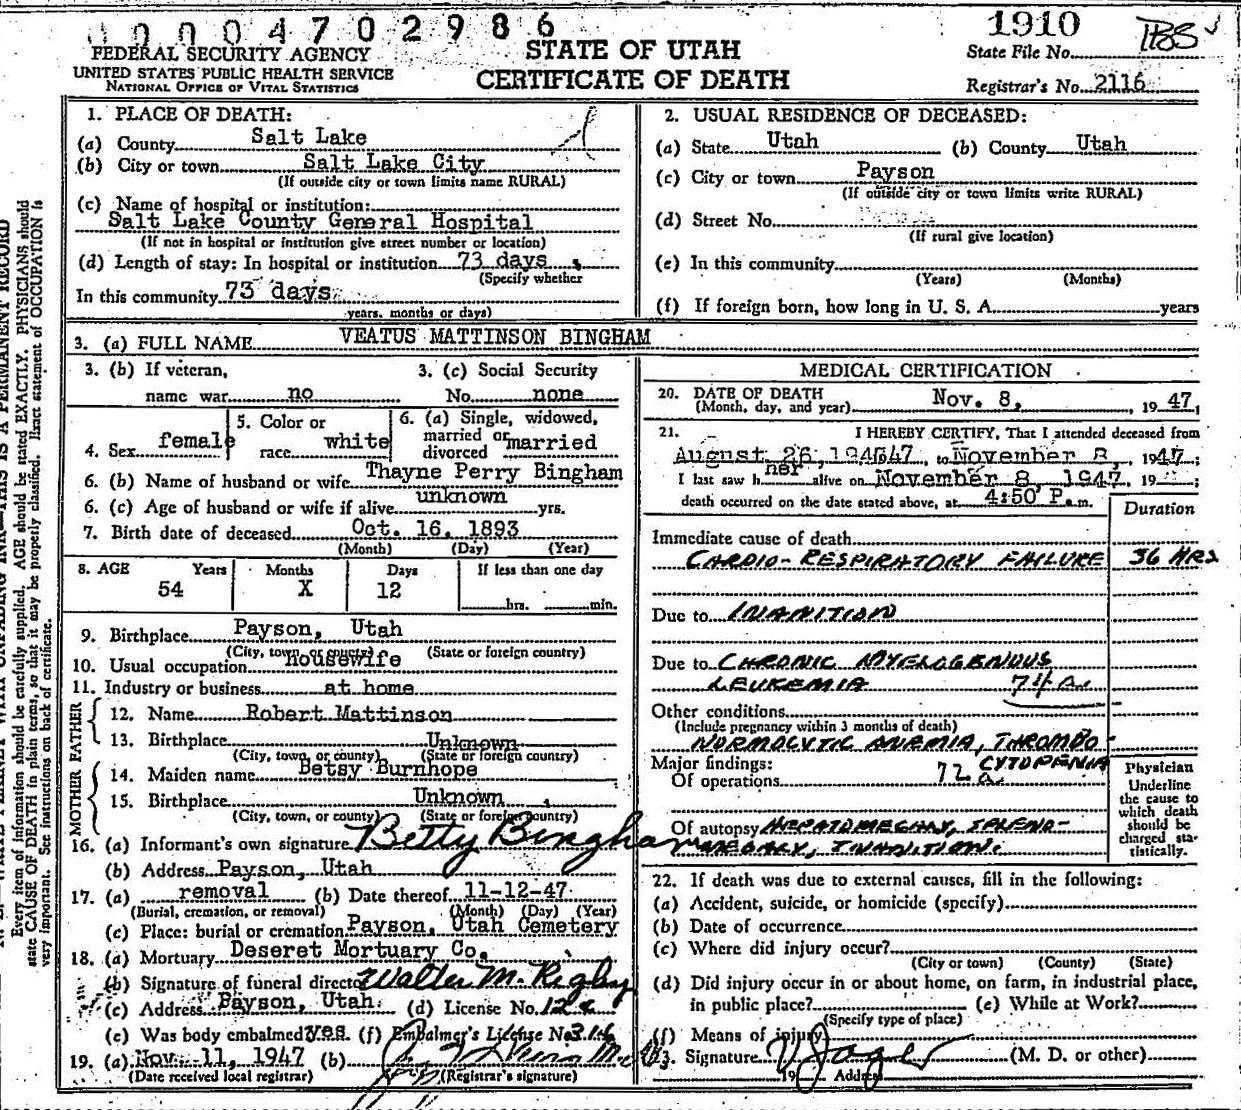 0004702986
1910
FEDERAL SECURITY AGENCY
UNITED STATES PUBLIC HEALTH SERVICE
NATIONAL OFFICE OF VITAL STATISTICS
STATE OF UTAH
CERTIFICATE OF DEATH
State File No.
Registrar's No. 2116
1. PLACE OF DEATH:
(a) County Salt Lake
(b) City or town Salt Lake City
(If outside city or town limits name RURAL)
(c) Name of hospital or institution:
Salt Lake County General Hospital
(If not in hospital or institution give street number or location)
(d) Length of stay: In hospital or institution 73 days
(Specify whether
In this community 73 days
years, months or days)
2. USUAL RESIDENCE OF DECEASED:
(a) State Utah (b) County Utah
(c) City or town Payson
(If outside city or town limits write RURAL)
(d) Street No.
(If rural give location)
(e) In this community
(Years) (Months)
(f) If foreign born, how long in U. S. A. years
3. (a) FULL NAME VEATUS MATTINSON BINGHAM
3. (b) If veteran, name war no
3. (c) Social Security No. none
4. Sex female
5. Color or race white
6. (a) Single, widowed, married or divorced married
6. (b) Name of husband or wife Thayne Perry Bingham
6. (c) Age of husband or wife if alive unknown yrs.
7. Birth date of deceased Oct. 16, 1893
(Month) (Day) (Year)
8. AGE Years Months Days If less than one day
54 X 12 hrs. min.
9. Birthplace Payson, Utah
(City, town, or county) (State or foreign country)
10. Usual occupation housewife
11. Industry or business at home
FATHER
12. Name Robert Mattinson
13. Birthplace Unknown
(City, town, or county) (State or foreign country)
MOTHER
14. Maiden name Betsy Burnhope
15. Birthplace Unknown
(City, town, or county) (State or foreign country)
16. (a) Informant's own signature Betty Bingham
(b) Address Payson, Utah
17. (a) removal (b) Date thereof 11-12-47
(Burial, cremation, or removal) (Month) (Day) (Year)
(c) Place: burial or cremation Payson, Utah Cemetery
18. (a) Mortuary Deseret Mortuary Co.
(b) Signature of funeral director Walter M. Rigby
(c) Address Payson, Utah. (d) License No.
(e) Was body embalmed? yes (f) Embalmer's License No. 316
19. (a) Nov. 11, 1947 (b)
(Date received local registrar) (Registrar's signature)
MEDICAL CERTIFICATION
20. DATE OF DEATH
(Month, day, and year) Nov. 8, 1947,
21. I HEREBY CERTIFY, That I attended deceased from
August 26, 1947, to November 8, 1947;
I last saw her alive on November 8, 1947, 19 ;
death occurred on the date stated above, at 4:50 P. m.
Duration
Immediate cause of death
CARDIO-RESPIRATORY FAILURE 36 HRS
Due to INANITION
Due to CHRONIC MYELOGENOUS
LEUKEMIA 74a.
Other conditions
(Include pregnancy within 3 months of death)
NORMOCYTIC ANEMIA, THROMBO-
CYTOPENIA
Major findings:
Of operations 72a.
Of autopsy HEPATOMEGALY, SPLENO-
MEGALY, INANITION.
Physician
Underline
the cause to
which death
should be
charged sta-
tistically.
22. If death was due to external causes, fill in the following:
(a) Accident, suicide, or homicide (specify)
(b) Date of occurrence
(c) Where did injury occur?
(City or town) (County) (State)
(d) Did injury occur in or about home, on farm, in industrial place,
in public place? (e) While at Work?
(Specify type of place)
(f) Means of injury
23. Signature (M. D. or other)
19 Address
THIS IS A PERMANENT RECORD
Every item of information should be carefully supplied. AGE should be stated EXACTLY. PHYSICIANS should
state CAUSE OF DEATH in plain terms, so that it may be properly classified. Exact statement of OCCUPATION is
very important. See instructions on back of certificate.